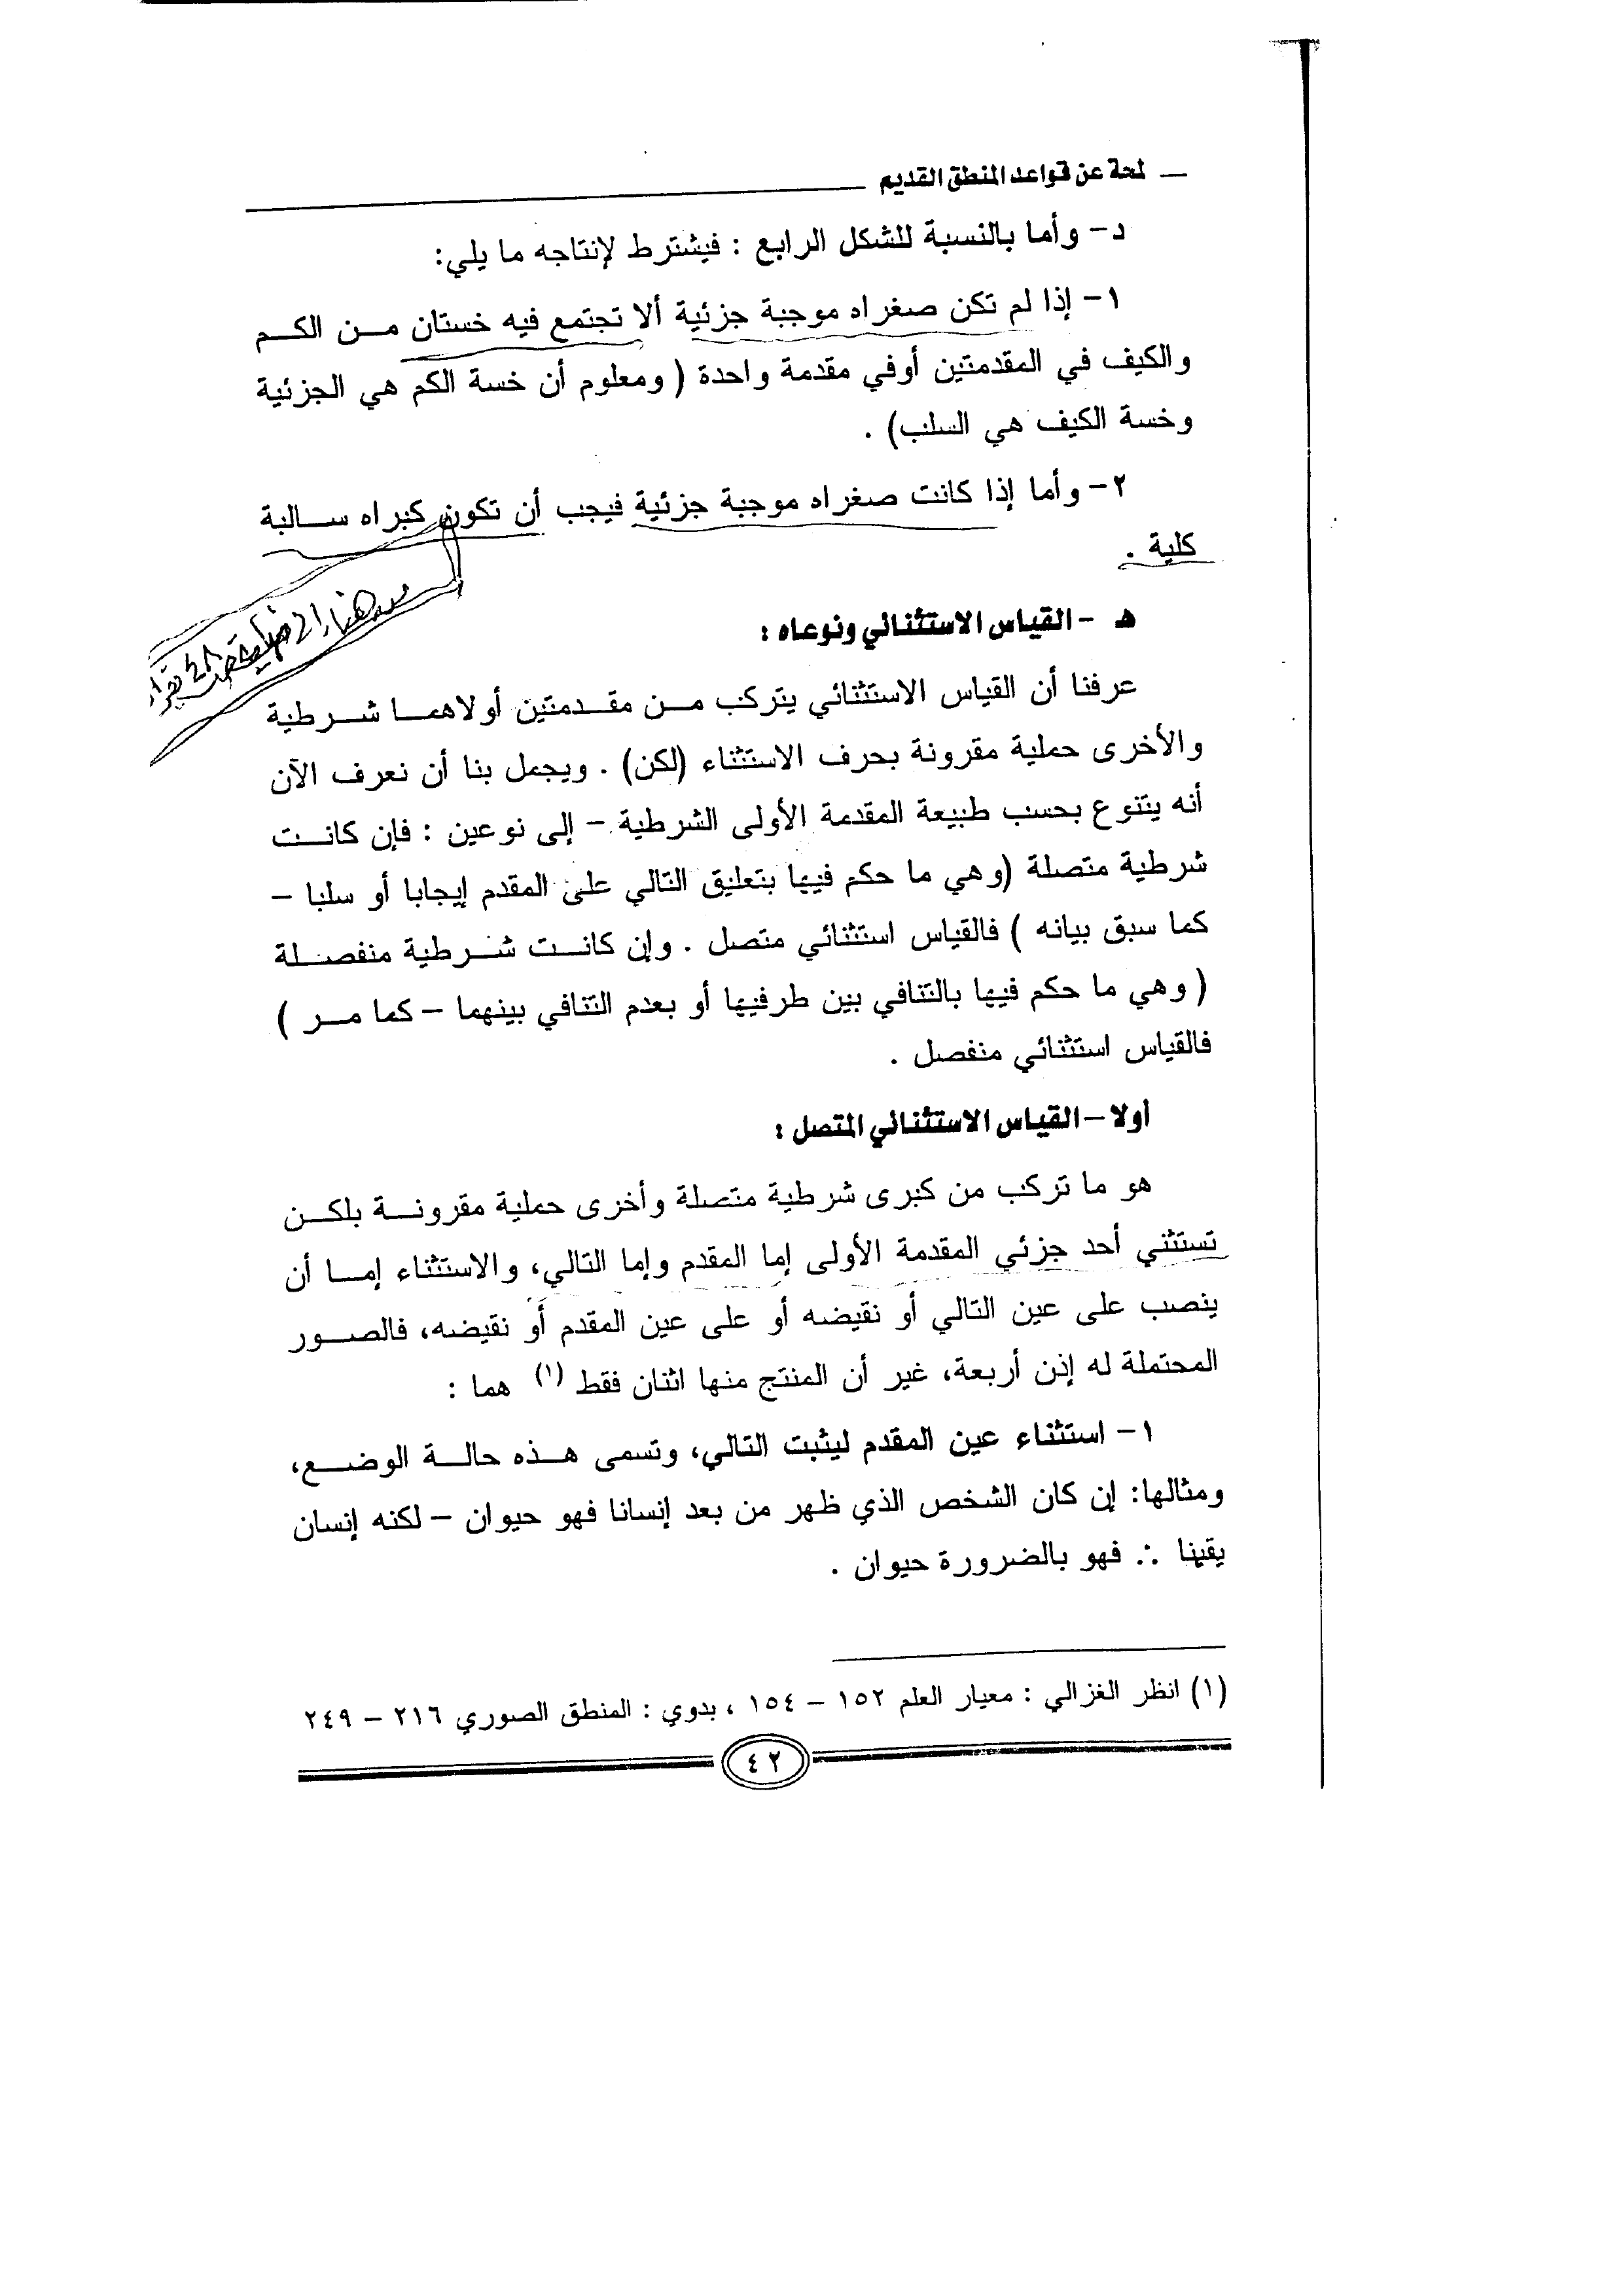 لمحة عن قواعد المنطق القديم
د- وأما بالنسبة للشكل الرابع : فيشترط لإنتاجه ما يلي:
١- إذا لم تكن صغراه موجبة جزئية ألا تجتمع فيه خستان من الكم
والكيف في المقدمتين أوفي مقدمة واحدة ( ومعلوم أن خسة الكم هي الجزئية
وخسة الكيف هي السلب) .
٢- وأما إذا كانت صغراه موجبة جزئية فيجب أن تكون كبراه سالبة
كلية .
هـ - القياس الاستثنائي ونوعاه :
عرفنا أن القياس الاستثنائي يتركب من مقدمتين أولاهما شرطية
والأخرى حملية مقرونة بحرف الاستثناء (لكن) . ويجمل بنا أن نعرف الآن
أنه يتنوع بحسب طبيعة المقدمة الأولى الشرطية - إلى نوعين : فإن كانت
شرطية متصلة (وهي ما حكم فيها بتعليق التالي على المقدم إيجابا أو سلبا –
كما سبق بيانه ) فالقياس استثنائي متصل . وإن كانت شرطية منفصلة
( وهي ما حكم فيها بالتنافي بين طرفيها أو بعدم التنافي بينهما – كما مر )
فالقياس استثنائي منفصل .
أولا – القياس الاستثنائي المتصل :
هو ما تركب من كبرى شرطية متصلة وأخرى حملية مقرونة بلكن
تستثني أحد جزئي المقدمة الأولى إما المقدم وإما التالي، والاستثناء إما أن
ينصب على عين التالي أو نقيضه أو على عين المقدم أو نقيضه، فالصور
المحتملة له إذن أربعة، غير أن المنتج منها اثنان فقط (١) هما :
١- استثناء عين المقدم ليثبت التالي، وتسمى هذه حالة الوضع،
ومثالها: إن كان الشخص الذي ظهر من بعد إنسانا فهو حيوان – لكنه إنسان
يقينا ∴ فهو بالضرورة حيوان .
(١) انظر الغزالي : معيار العلم ١٥٢ – ١٥٤ ، بدوي : المنطق الصوري ٢١٦ – ٢٤٩
٤٢